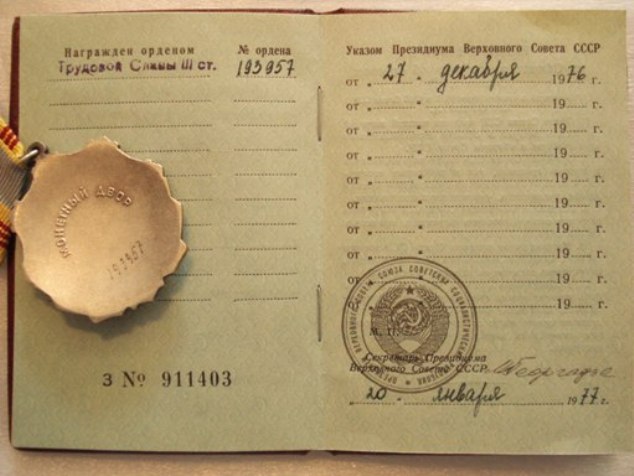 Награжден орденом
№ ордена
Трудовой Славы III ст.
193957
МОНЕТНЫЙ ДВОР
З № 911403
Указом Президиума Верховного Совета СССР
от „ 27 " декабря 1976 г.
от „ " 19 г.
от „ " 19 г.
от „ " 19 г.
от „ " 19 г.
от „ " 19 г.
от „ " 19 г.
от „ " 19 г.
от „ " 19 г.
от „ " 19 г.
М. П.
Секретарь Президиума
Верховного Совета СССР
Георгадзе
20 января 1977 г.